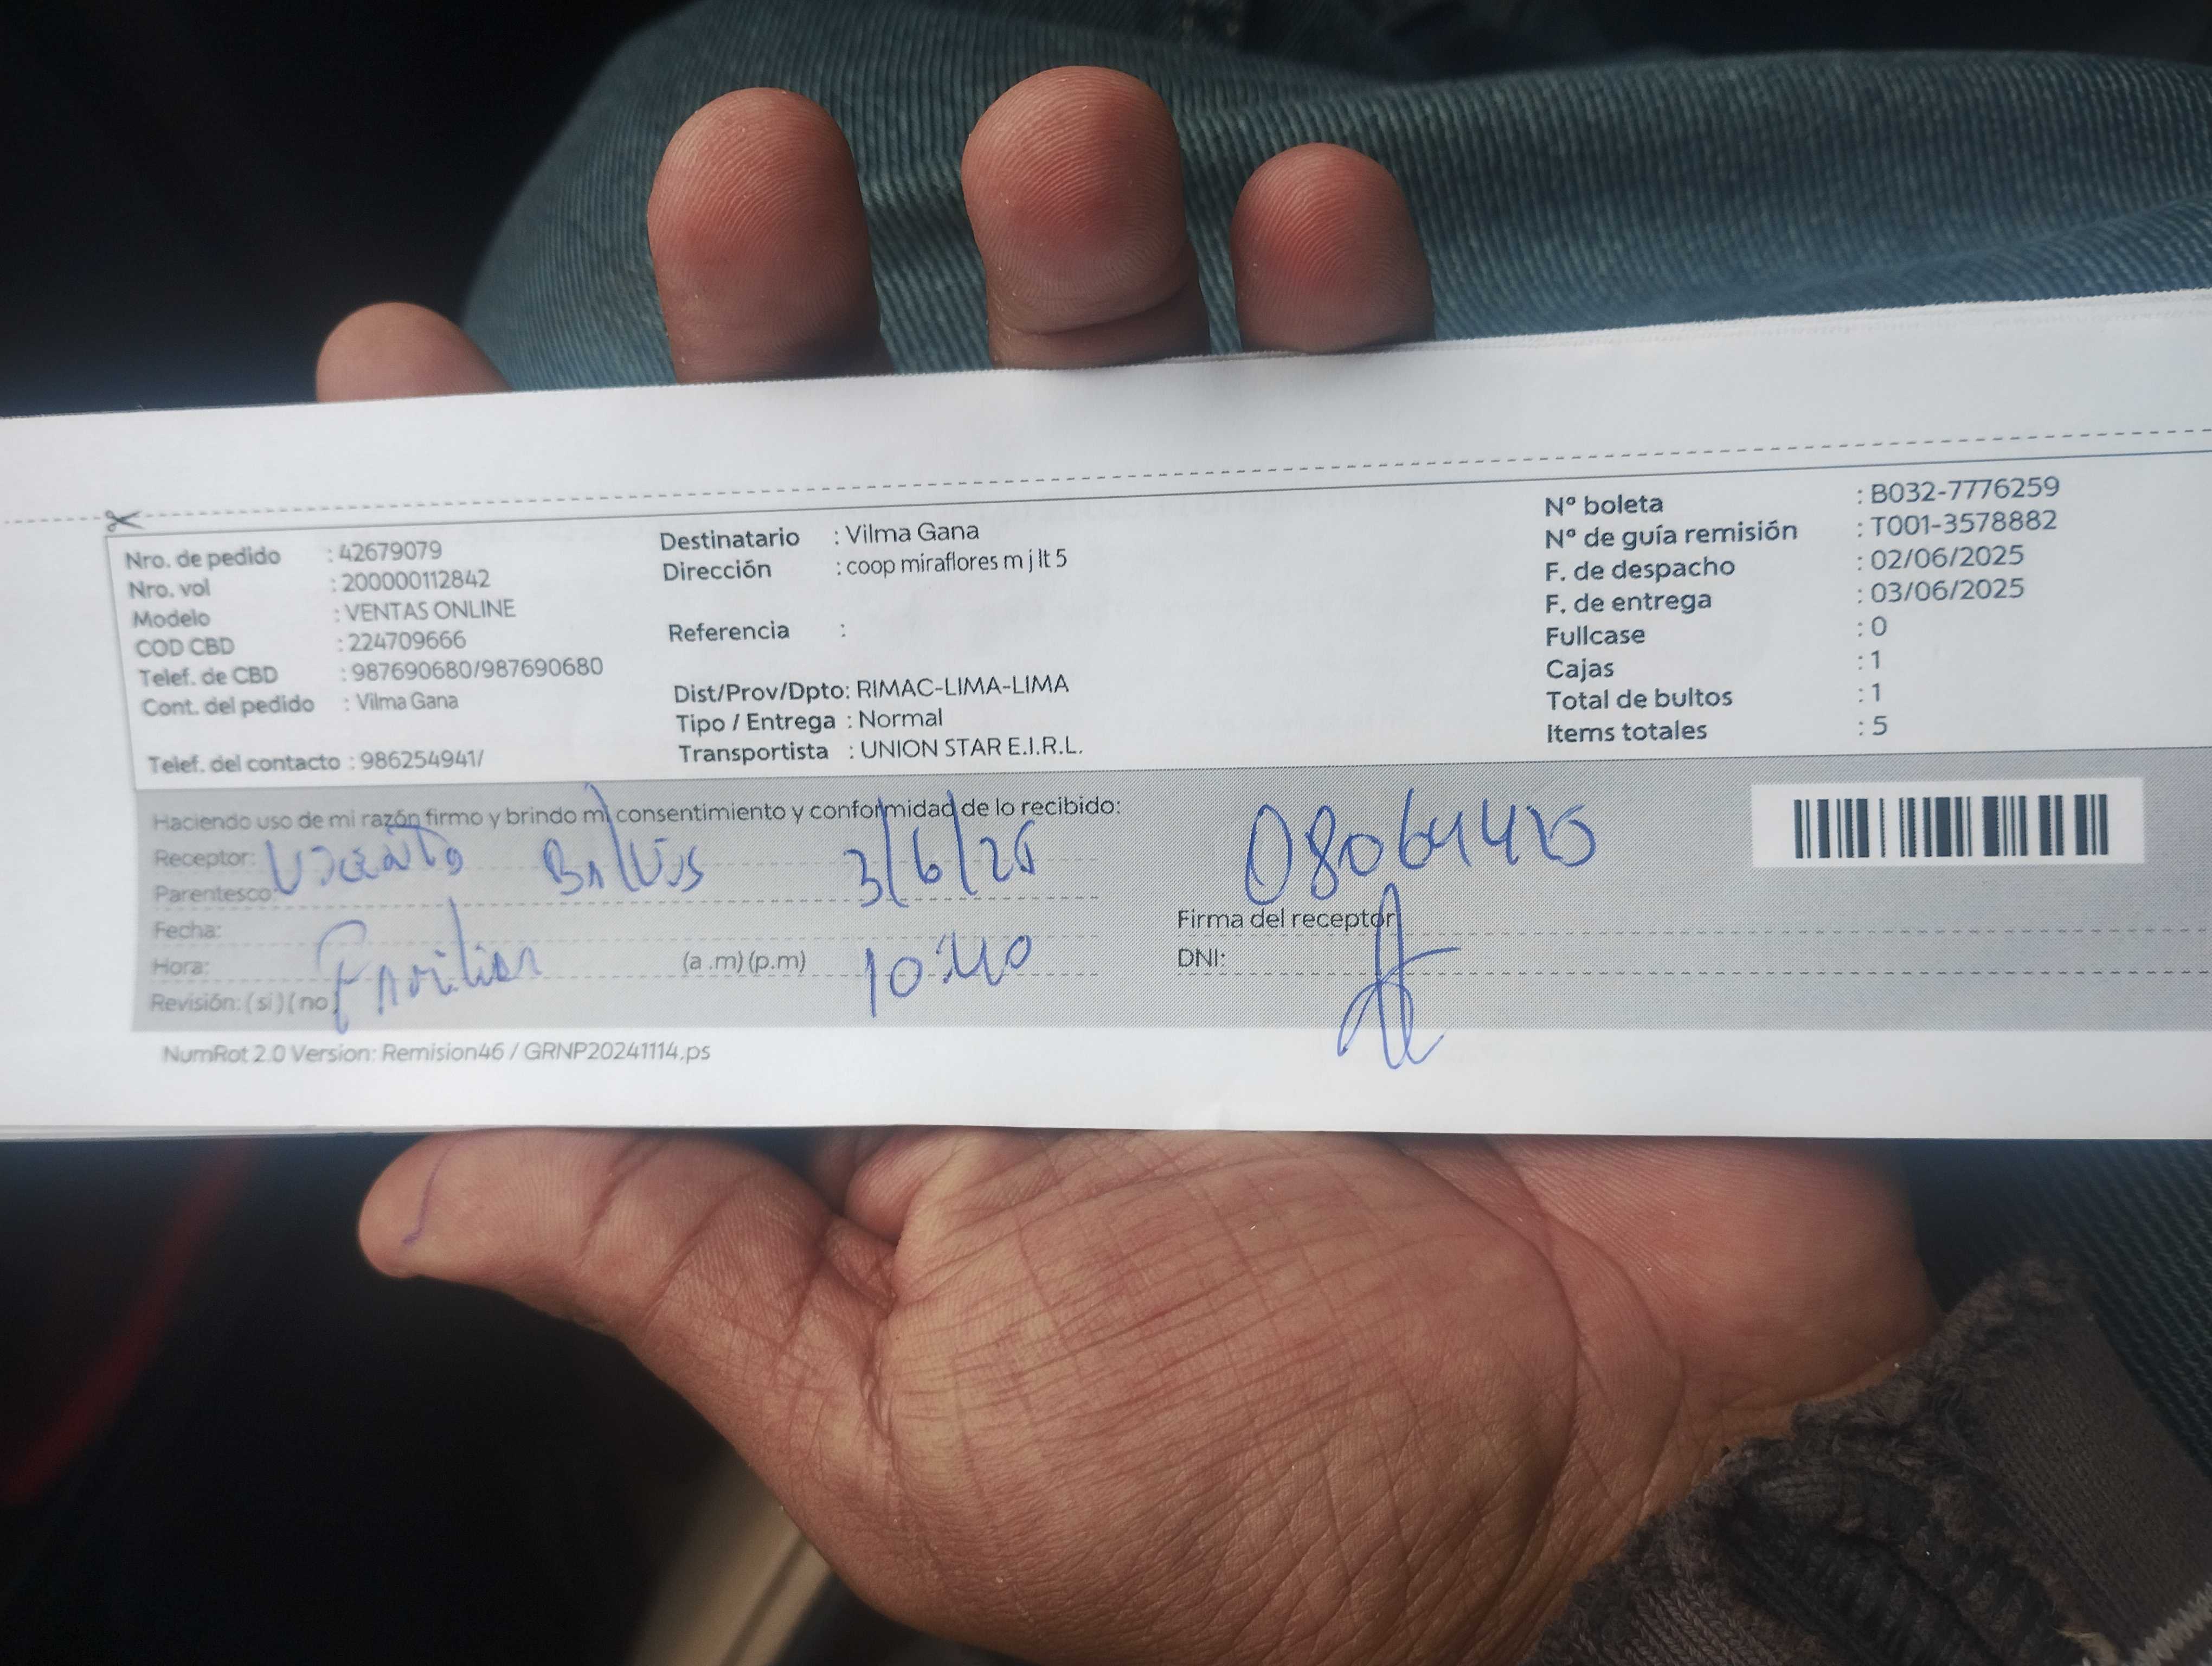 Nro. de pedido : 42679079
Nro. vol : 200000112842
Modelo : VENTAS ONLINE
COD CBD : 224709666
Telef. de CBD : 987690680/987690680
Cont. del pedido : Vilma Gana
Telef. del contacto : 986254941/
Destinatario : Vilma Gana
Dirección : coop miraflores m j lt 5
Referencia :
Dist/Prov/Dpto: RIMAC-LIMA-LIMA
Tipo / Entrega : Normal
Transportista : UNION STAR E.I.R.L.
Nº boleta : B032-7776259
Nº de guía remisión : T001-3578882
F. de despacho : 02/06/2025
F. de entrega : 03/06/2025
Fullcase : 0
Cajas : 1
Total de bultos : 1
Items totales : 5
Haciendo uso de mi razón firmo y brindo mi consentimiento y conformidad de lo recibido:
Receptor:
Parentesco:
3/6/25
Fecha:
Familiar
Hora: (a .m) (p.m) 10:40
Revisión: (si) (no)
Firma del receptor
DNI:
NumRot 2.0 Version: Remision46 / GRNP20241114.ps